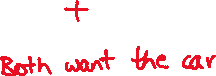 +
Both want the car